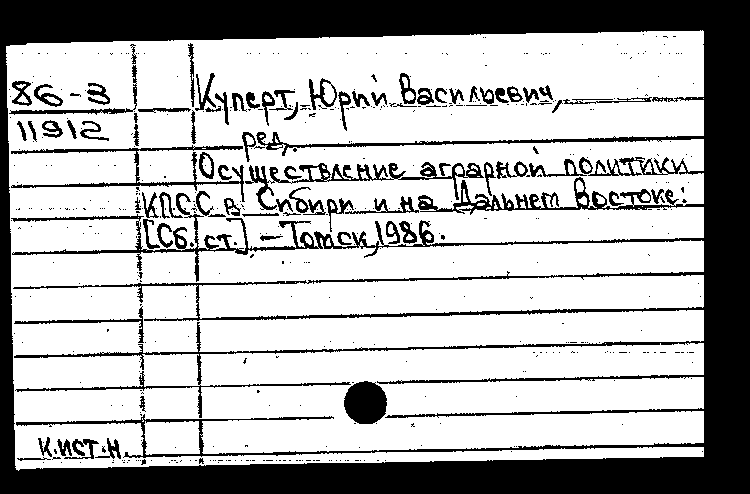 86-3
Куперт, Юрий Васильевич,
11912
ред.
Осуществление аграрной политики
КПСС в Сибири и на Дальнем Востоке:
[Сб. ст.]. - Томск, 1986.
К.ИСТ.Н.